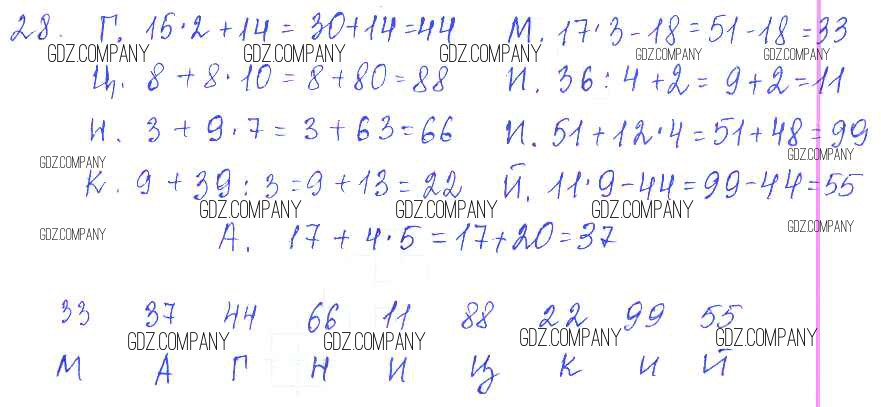 28. Г. 15·2+14 = 30+14=44 М. 17·3-18=51-18=33
GDZ.COMPANY GDZ.COMPANY GDZ.COMPANY GDZ.COMPANY GDZ.COMPANY
Ц. 8+8·10=8+80=88 И. 36:4+2=9+2=11
Н. 3+9·7=3+63=66 И. 51+12·4=51+48=99
GDZ.COMPANY GDZ.COMPANY
К. 9+39:3=9+13=22 Й. 11·9-44=99-44=55
GDZ.COMPANY GDZ.COMPANY GDZ.COMPANY
GDZ.COMPANY GDZ.COMPANY
А. 17+4·5=17+20=37
33 37 44 66 11 88 22 99 55
GDZ.COMPANY GDZ.COMPANY GDZ.COMPANY GDZ.COMPANY
М А Г Н И Ц К И Й